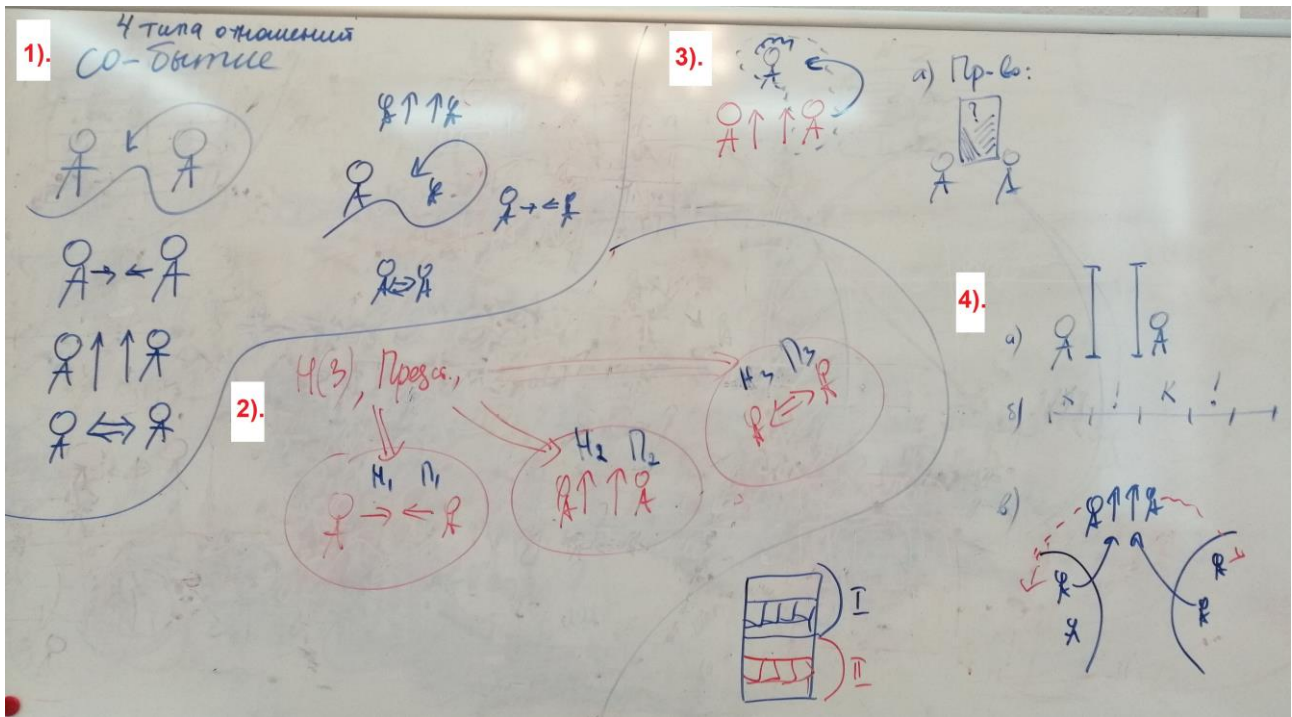 1).
4 типа отношений
СО-бытие
2).
Н(З), Предм.,
Н₁ П₁
Н₂ П₂
Н₃ П₃
I
II
3).
а) Пр-во:
?
4).
а)
б) К ! К !
в)